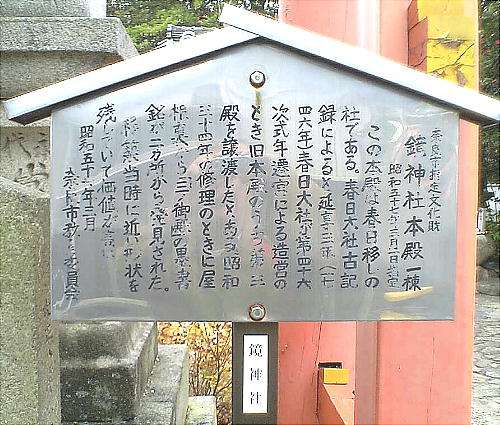 奈良市指定文化財
鏡神社本殿一棟
昭和五十一年二月二日指定
この本殿は春日移しの
社である。春日大社古記
録によると延享三年(一七
四六年)春日大社第四十六
次式年遷宮による造営の
とき旧本殿のうち第三
殿を譲渡したとあり昭和
三十四年の修理のときに屋
根裏から三ノ御殿の墨書
銘が二カ所から発見された。
移築当時に近い形状を
残していて価値が高い
昭和五十一年二月
奈良市教育委員会
鏡神社